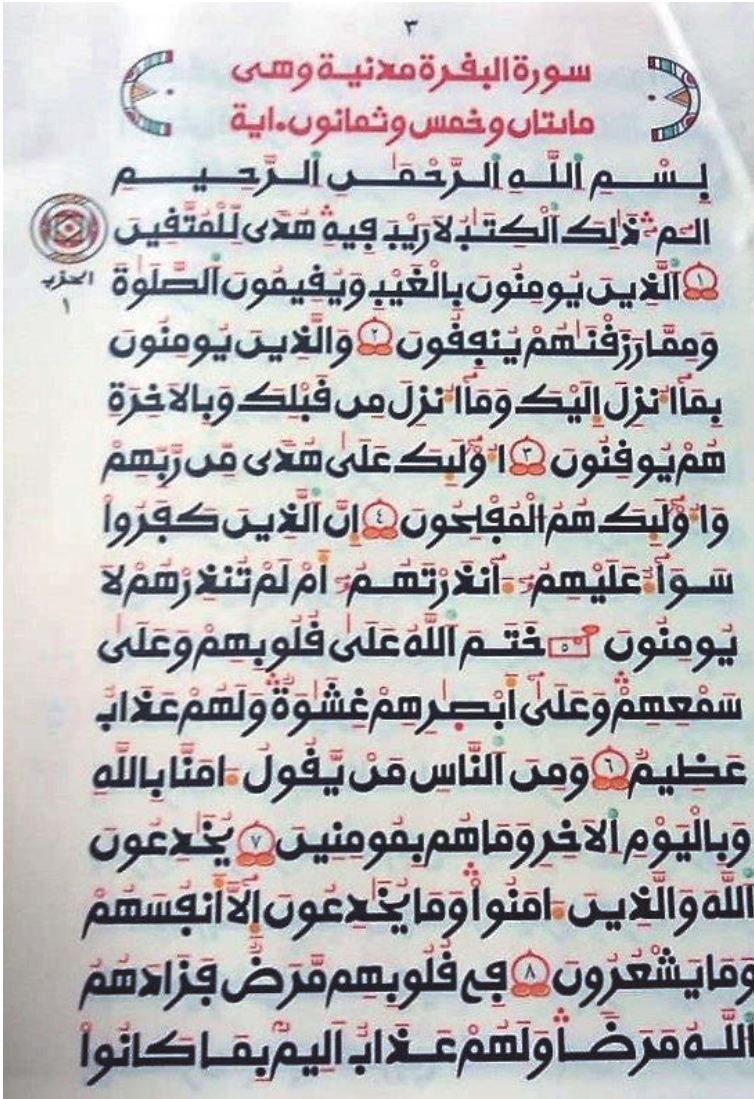 ٣
سورة البفرة مدنية وهى
مائتان وخمس وثمانون ءاية
بِسْمِ اِ۬للَّهِ اِ۬لرَّحْمَٰنِ اِ۬لرَّحِيمِ
الٓمٓ ذَٰلِكَ اَ۬لْكِتَٰبُ لَا رَيْبَ ڢِيهِ هُدىً لِّلْمُتَّفِينَ
الحزب
١
١ اَ۬لذِينَ يُومِنُونَ بِالْغَيْبِ وَيُفِيمُونَ اَ۬لصَّلَوٰةَ
وَمِمَّا رَزَفْنَٰهُمْ يُنڢِفُونَ ٢ وَالذِينَ يُومِنُونَ
بِمَآ أُنزِلَ إِلَيْكَ وَمَآ أُنزِلَ مِن فَبْلِكَ وَبِالَاخِرَةِ
هُمْ يُوفِنُونَ ٣ أُوْلَٰٓئِكَ عَلَىٰ هُدىً مِّن رَّبِّهِمْ
وَأُوْلَٰٓئِكَ هُمُ الْمُڢْلِحُونَ ٤ إِنَّ اَ۬لذِينَ كَڢَرُواْ
سَوَآءٌ عَلَيْهِمُۥٓ ءَآنذَرْتَهُمُۥٓ أَمْ لَمْ تُنذِرْهُمْ لَا
يُومِنُونَ ٥ خَتَمَ اَ۬للَّهُ عَلَىٰ فُلُوبِهِمْ وَعَلَىٰ
سَمْعِهِمْ وَعَلَىٰٓ أَبْصِٰرِهِمْ غِشَٰوَةٌ وَلَهُمْ عَذَابٌ
عَظِيمٌ ٦ وَمِنَ اَ۬لنَّاسِ مَنْ يَّفُولُ ءَامَنَّا بِاللَّهِ
وَبِالْيَوْمِ اِ۬لَاخِرِ وَمَا هُم بِمُومِنِينَ ٧ يُخَٰدِعُونَ
اَ۬للَّهَ وَالذِينَ ءَامَنُواْ وَمَا يُخَٰدِعُونَ إِلَّآ أَنڢُسَهُمْ
وَمَا يَشْعُرُونَ ٨ ڢِے فُلُوبِهِم مَّرَضٌ ڢَزَادَهُمُ
اُ۬للَّهُ مَرَضاً وَلَهُمْ عَذَابٌ اَلِيمٌ بِمَا كَانُواْ